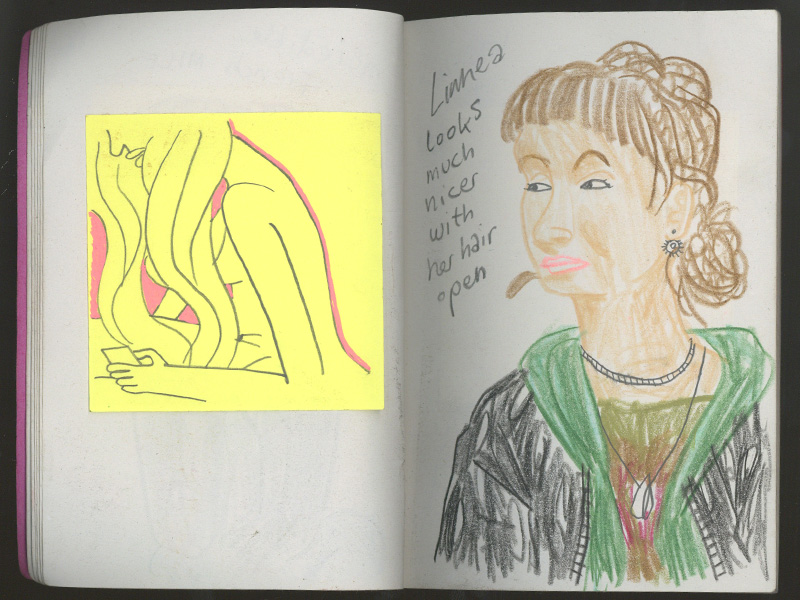 Linnea
looks
much
nicer
with
her hair
open